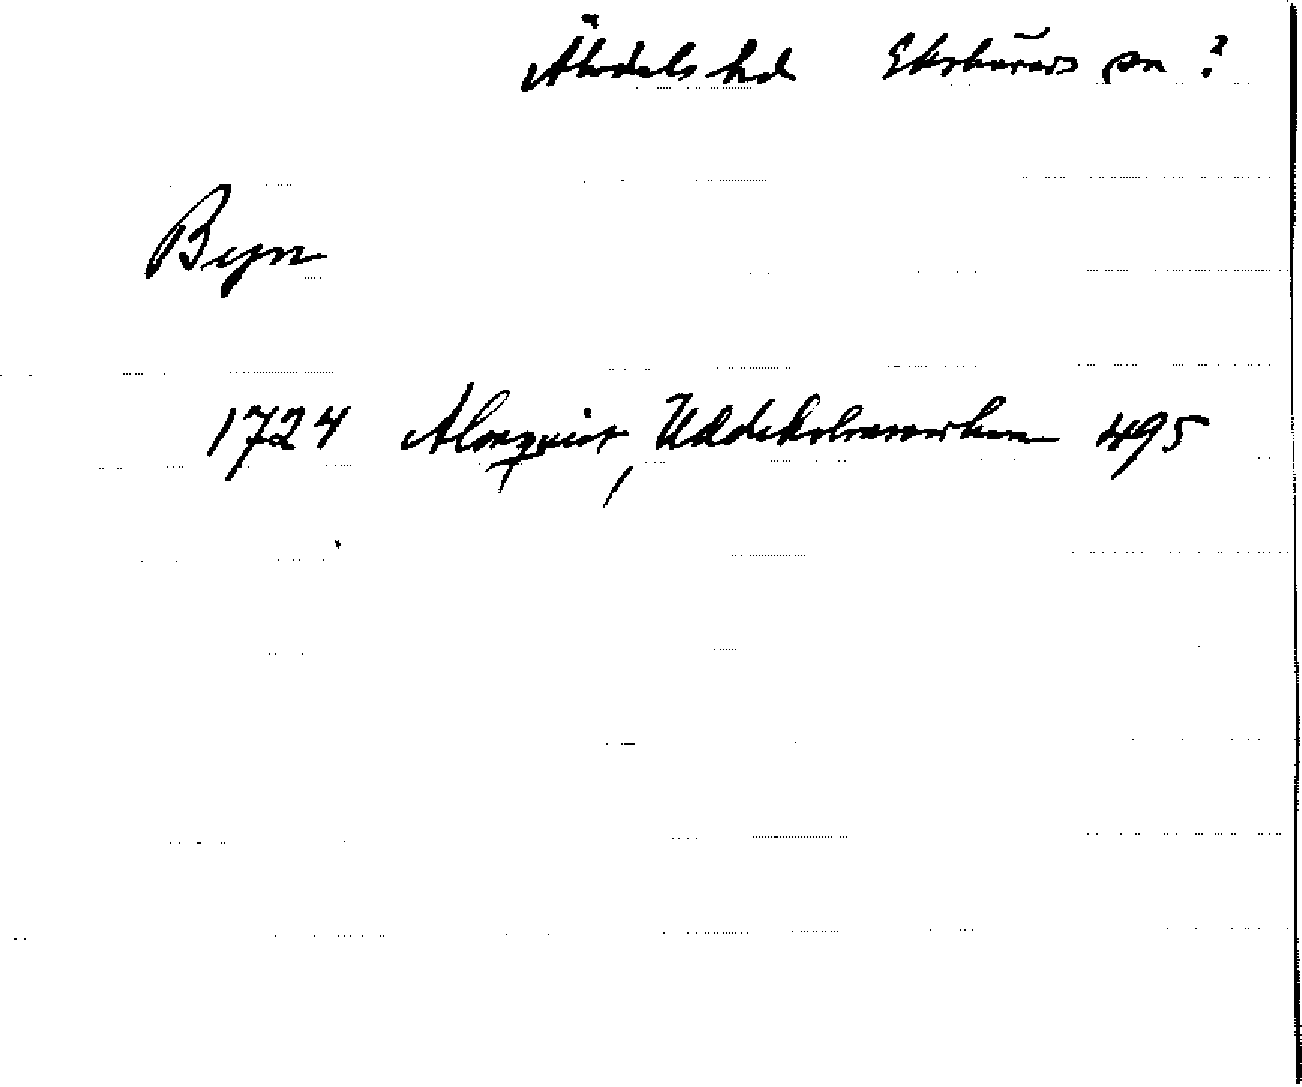 Älvdals hd Ekshärads sn ?
Byn
1724 Almquist, Uddeholmsverken 495